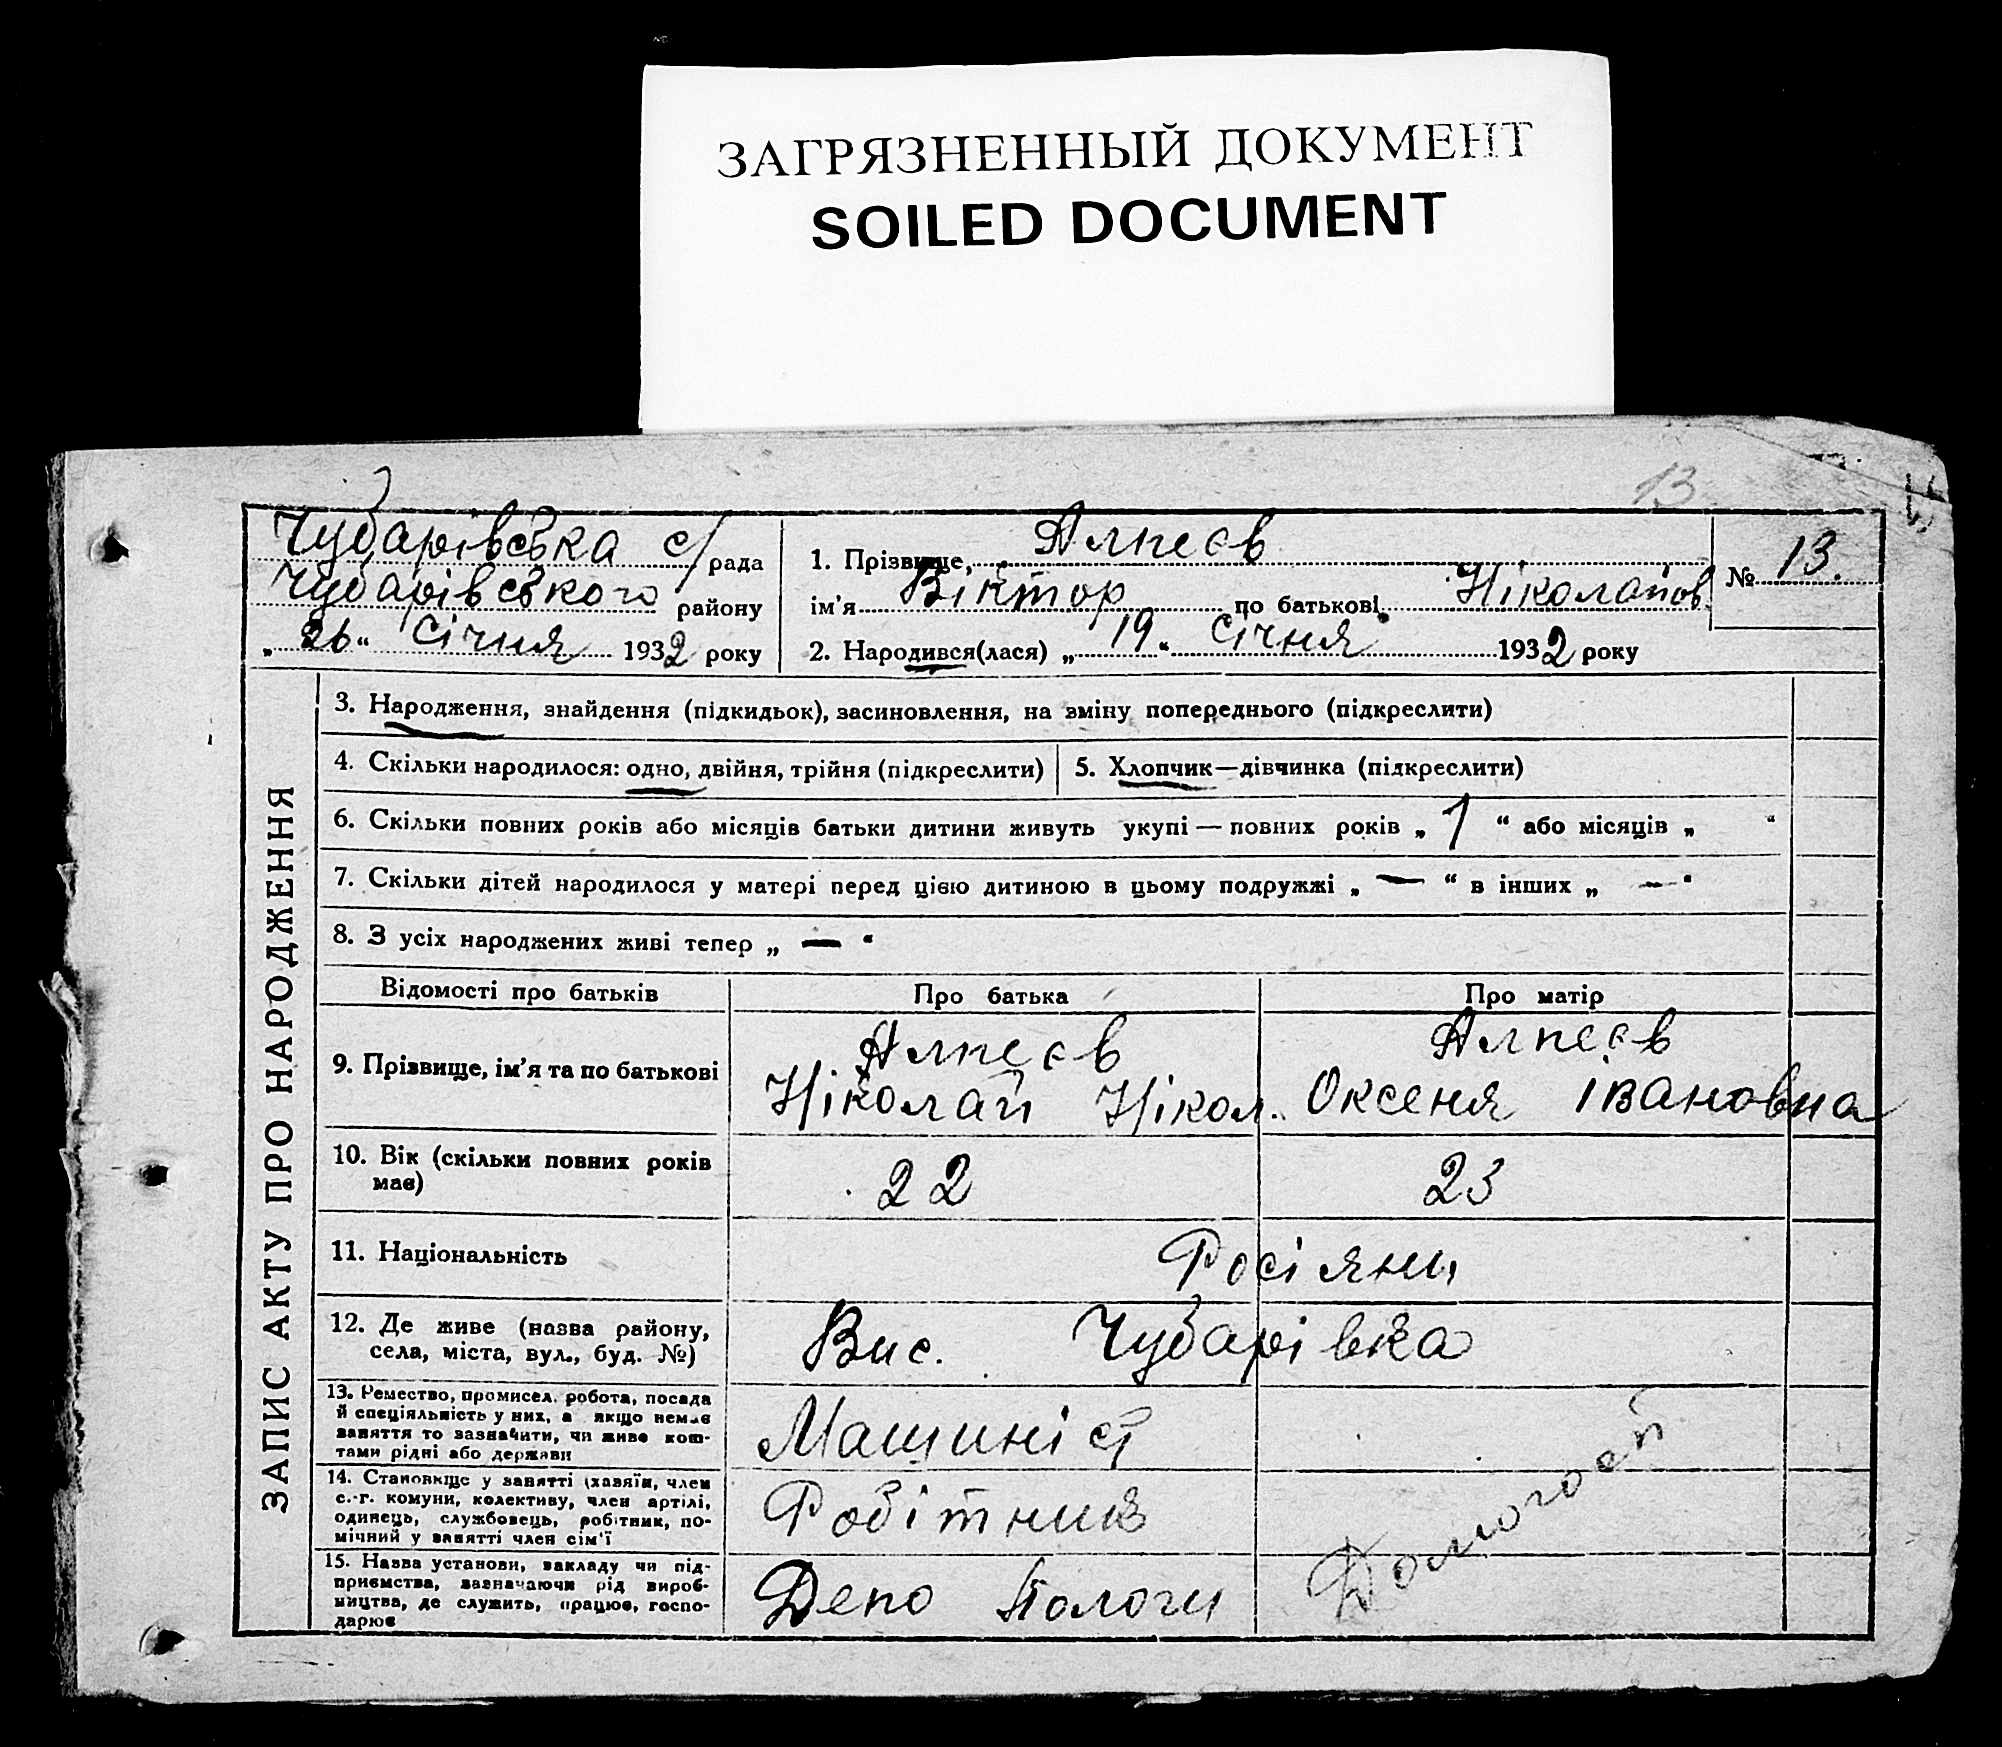 ЗАГРЯЗНЕННЫЙ ДОКУМЕНТ
SOILED DOCUMENT
13
Чубарівська с/рада
Чубарівського району
„26“ Січня 1932 року
1. Прізвище, Алпеєв
ім'я Віктор по батькові Ніколайов.
2. Народився(лася) „19“ Січня 1932 року
№ 13.
ЗАПИС АКТУ ПРО НАРОДЖЕННЯ
3. Народження, знайдення (підкидьок), засиновлення, на зміну попереднього (підкреслити)
4. Скільки народилося: одно, двійня, трійня (підкреслити)
5. Хлопчик—дівчинка (підкреслити)
6. Скільки повних років або місяців батьки дитини живуть укупі — повних років „1“ або місяців „ “
7. Скільки дітей народилося у матері перед цією дитиною в цьому подружжі „—“ в інших „—“
8. З усіх народжених живі тепер „—“
Відомості про батьків
Про батька
Про матір
9. Прізвище, ім'я та по батькові
Алпеєв
Ніколай Нікол.
Алпеєв
Оксеня Івановна
10. Вік (скільки повних років
має)
22
23
11. Національність
Росіяни
12. Де живе (назва району,
села, міста, вул., буд. №)
Вис. Чубарівка
13. Ремество, промисел, робота, посада
й спеціяльність у них, а якщо немає
заняття то зазначити, чи живе кош-
тами рідні або держави
Машиніст
14. Становище у занятті (хазяїн, член
с.-г. комуни, колективу, член артілі,
одинець, службовець, робітник, по-
мічний у занятті член сім'ї
Робітник
15. Назва установи, закладу чи під-
приємства, зазначаючи рід вироб-
ництва, де служить, працює, госпо-
дарює
Депо Пологи
Домогосп